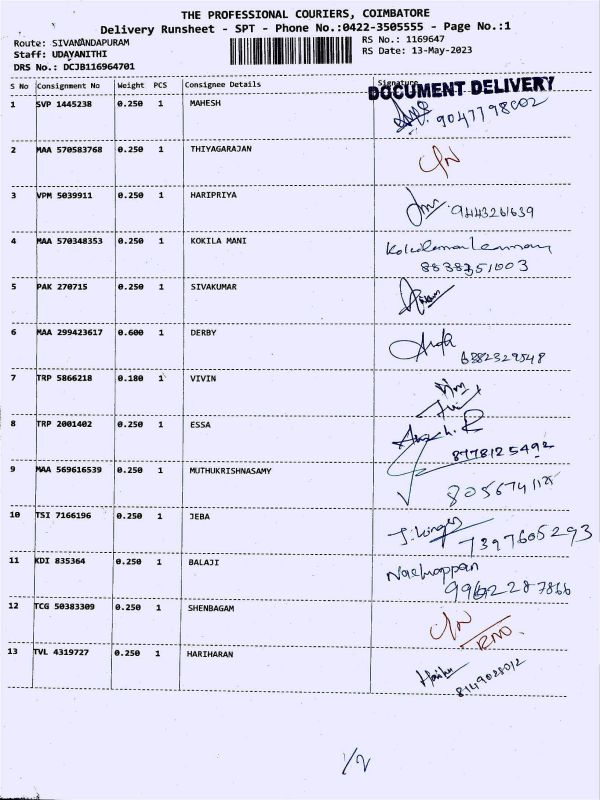 THE PROFESSIONAL COURIERS, COIMBATORE
Delivery Runsheet - SPT - Phone No.:0422-3505555 - Page No.:1
Route: SIVANANDAPURAM
RS No.: 1169647
Staff: UDAYANITHI
RS Date: 13-May-2023
DRS No.: DCJB116964701
S No Consignment No Weight PCS Consignee Details Signature
DOCUMENT DELIVERY
1 SVP 1445238 0.250 1 MAHESH
9047798002
2 MAA 570583768 0.250 1 THIYAGARAJAN
C/N
3 VPM 5039911 0.250 1 HARIPRIYA
9443261639
4 MAA 570348353 0.250 1 KOKILA MANI
8838351003
5 PAK 270715 0.250 1 SIVAKUMAR
6 MAA 299423617 0.600 1 DERBY
6382329548
7 TRP 5866218 0.180 1 VIVIN
8 TRP 2001402 0.250 1 ESSA
8778125492
9 MAA 569616539 0.250 1 MUTHUKRISHNASAMY
10 TSI 7166196 0.250 1 JEBA
7397605293
11 KDI 835364 0.250 1 BALAJI
Nachiappan
12 TCG 50383309 0.250 1 SHENBAGAM
C/N
RNO.
13 TVL 4319727 0.250 1 HARIHARAN
8149028012
1/2